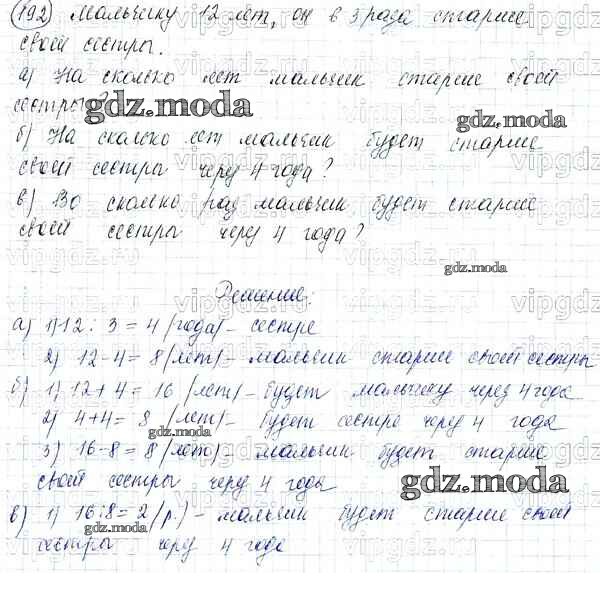 192) Мальчику 12 лет, он в 3 раза старше
своей сестры.
а) На сколько лет мальчик старше своей
сестры?
gdz.moda
gdz.moda
б) На сколько лет мальчик будет старше
своей сестры через 4 года?
в) Во сколько раз мальчик будет старше
своей сестры через 4 года?
gdz.moda
Решение:
а) 1) 12 : 3 = 4 (года) - сестре
2) 12 - 4 = 8 (лет) - мальчик старше своей сестры
б) 1) 12 + 4 = 16 (лет) - будет мальчику через 4 года
2) 4 + 4 = 8 (лет) - будет сестре через 4 года
gdz.moda
3) 16 - 8 = 8 (лет) - мальчик будет старше
своей сестры через 4 года
gdz.moda
в) 1) 16 : 8 = 2 (р.) - мальчик будет старше своей
gdz.moda
сестры через 4 года